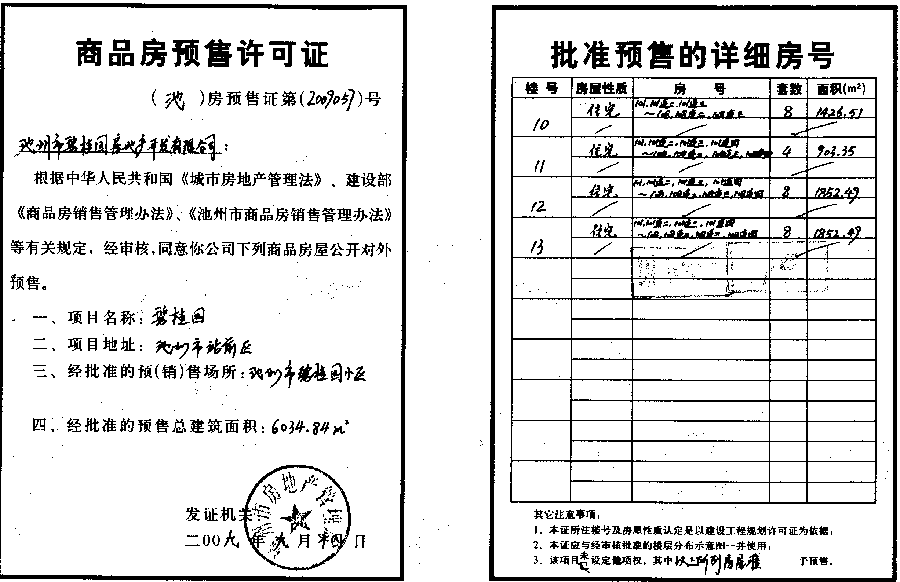 商品房预售许可证
(池)房预售证第(2009057)号
池州市碧桂园房地产开发有限公司:
根据中华人民共和国《城市房地产管理法》、建设部
《商品房销售管理办法》、《池州市商品房销售管理办法》
等有关规定,经审核,同意你公司下列商品房屋公开对外
预售。
一、项目名称:碧桂园
二、项目地址:池州市站前区
三、经批准的预(销)售场所:池州市碧桂园小区
四、经批准的预售总建筑面积:6034.84m²
发证机关
二00九年九月
批准预售的详细房号
楼号 房屋性质 房号 套数 面积(m²)
10 住宅 8 1426.51
11 住宅 4 903.35
12 住宅 8 1852.49
13 住宅 8 1852.49
其它注意事项:
1、本证所注楼号及房屋性质认定是以建设工程规划许可证为依据;
2、本证应与经审核批准的楼层分布示意图一并使用;
3、该项目未设定他项权,其中以上所列房屋准予预售。